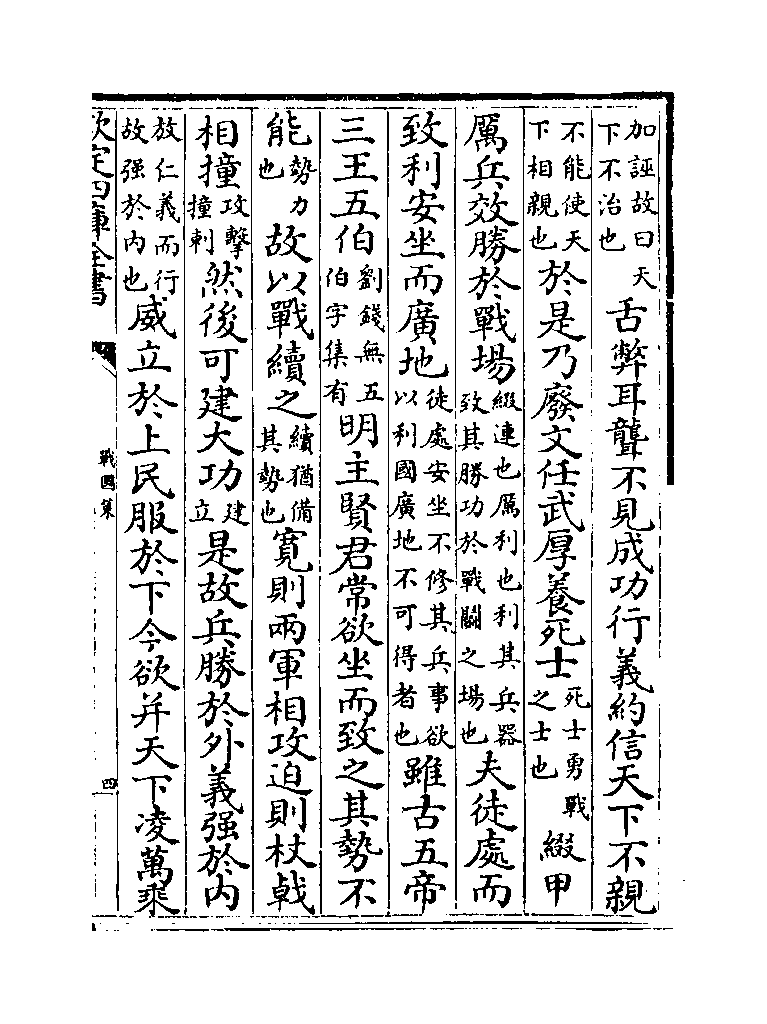 加誣故曰天下不治也舌弊耳聾不見成功行義約信天下不親
不能使天下相親也於是乃廢文任武厚養死士死士勇戰之士也綴甲
厲兵效勝於戰場綴連也厲利也利其兵器致其勝功於戰鬭之場也夫徒處而
致利安坐而廣地徒處安坐不修其兵事欲以利國廣地不可得者也雖古五帝
三王五伯劉錢無五伯字集有明主賢君常欲坐而致之其勢不
能勢力也故以戰續之續猶備其勢也寛則兩軍相攻迫則杖戟
相撞攻擊撞刺然後可建大功建立是故兵勝於外義强於內
故仁義而行故强於內也威立於上民服於下今欲并天下凌萬乘
欽定四庫全書
戰國策
四